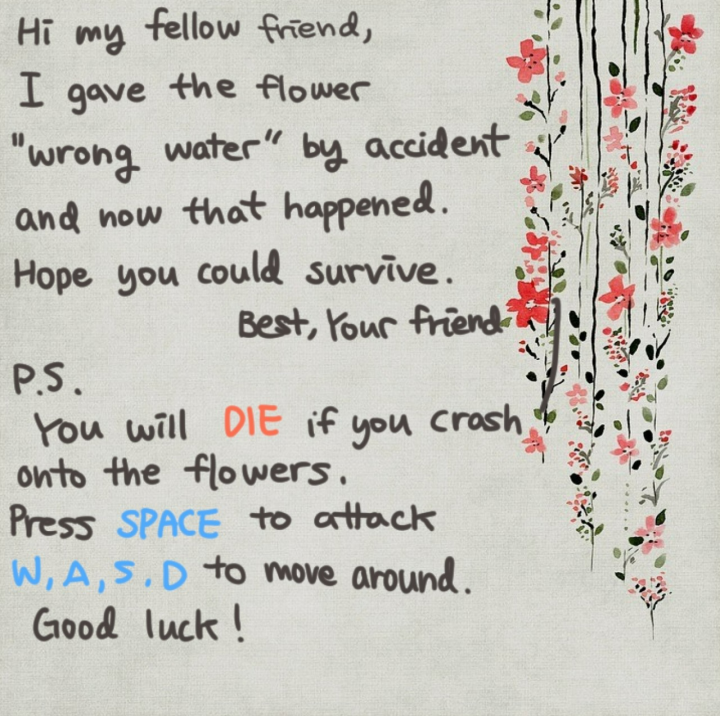 Hi my fellow friend,
I gave the flower
"wrong water" by accident
and now that happened.
Hope you could survive.
Best, Your friend
P.S.
You will DIE if you crash
onto the flowers.
Press SPACE to attack
W, A, S, D to move around.
Good luck!